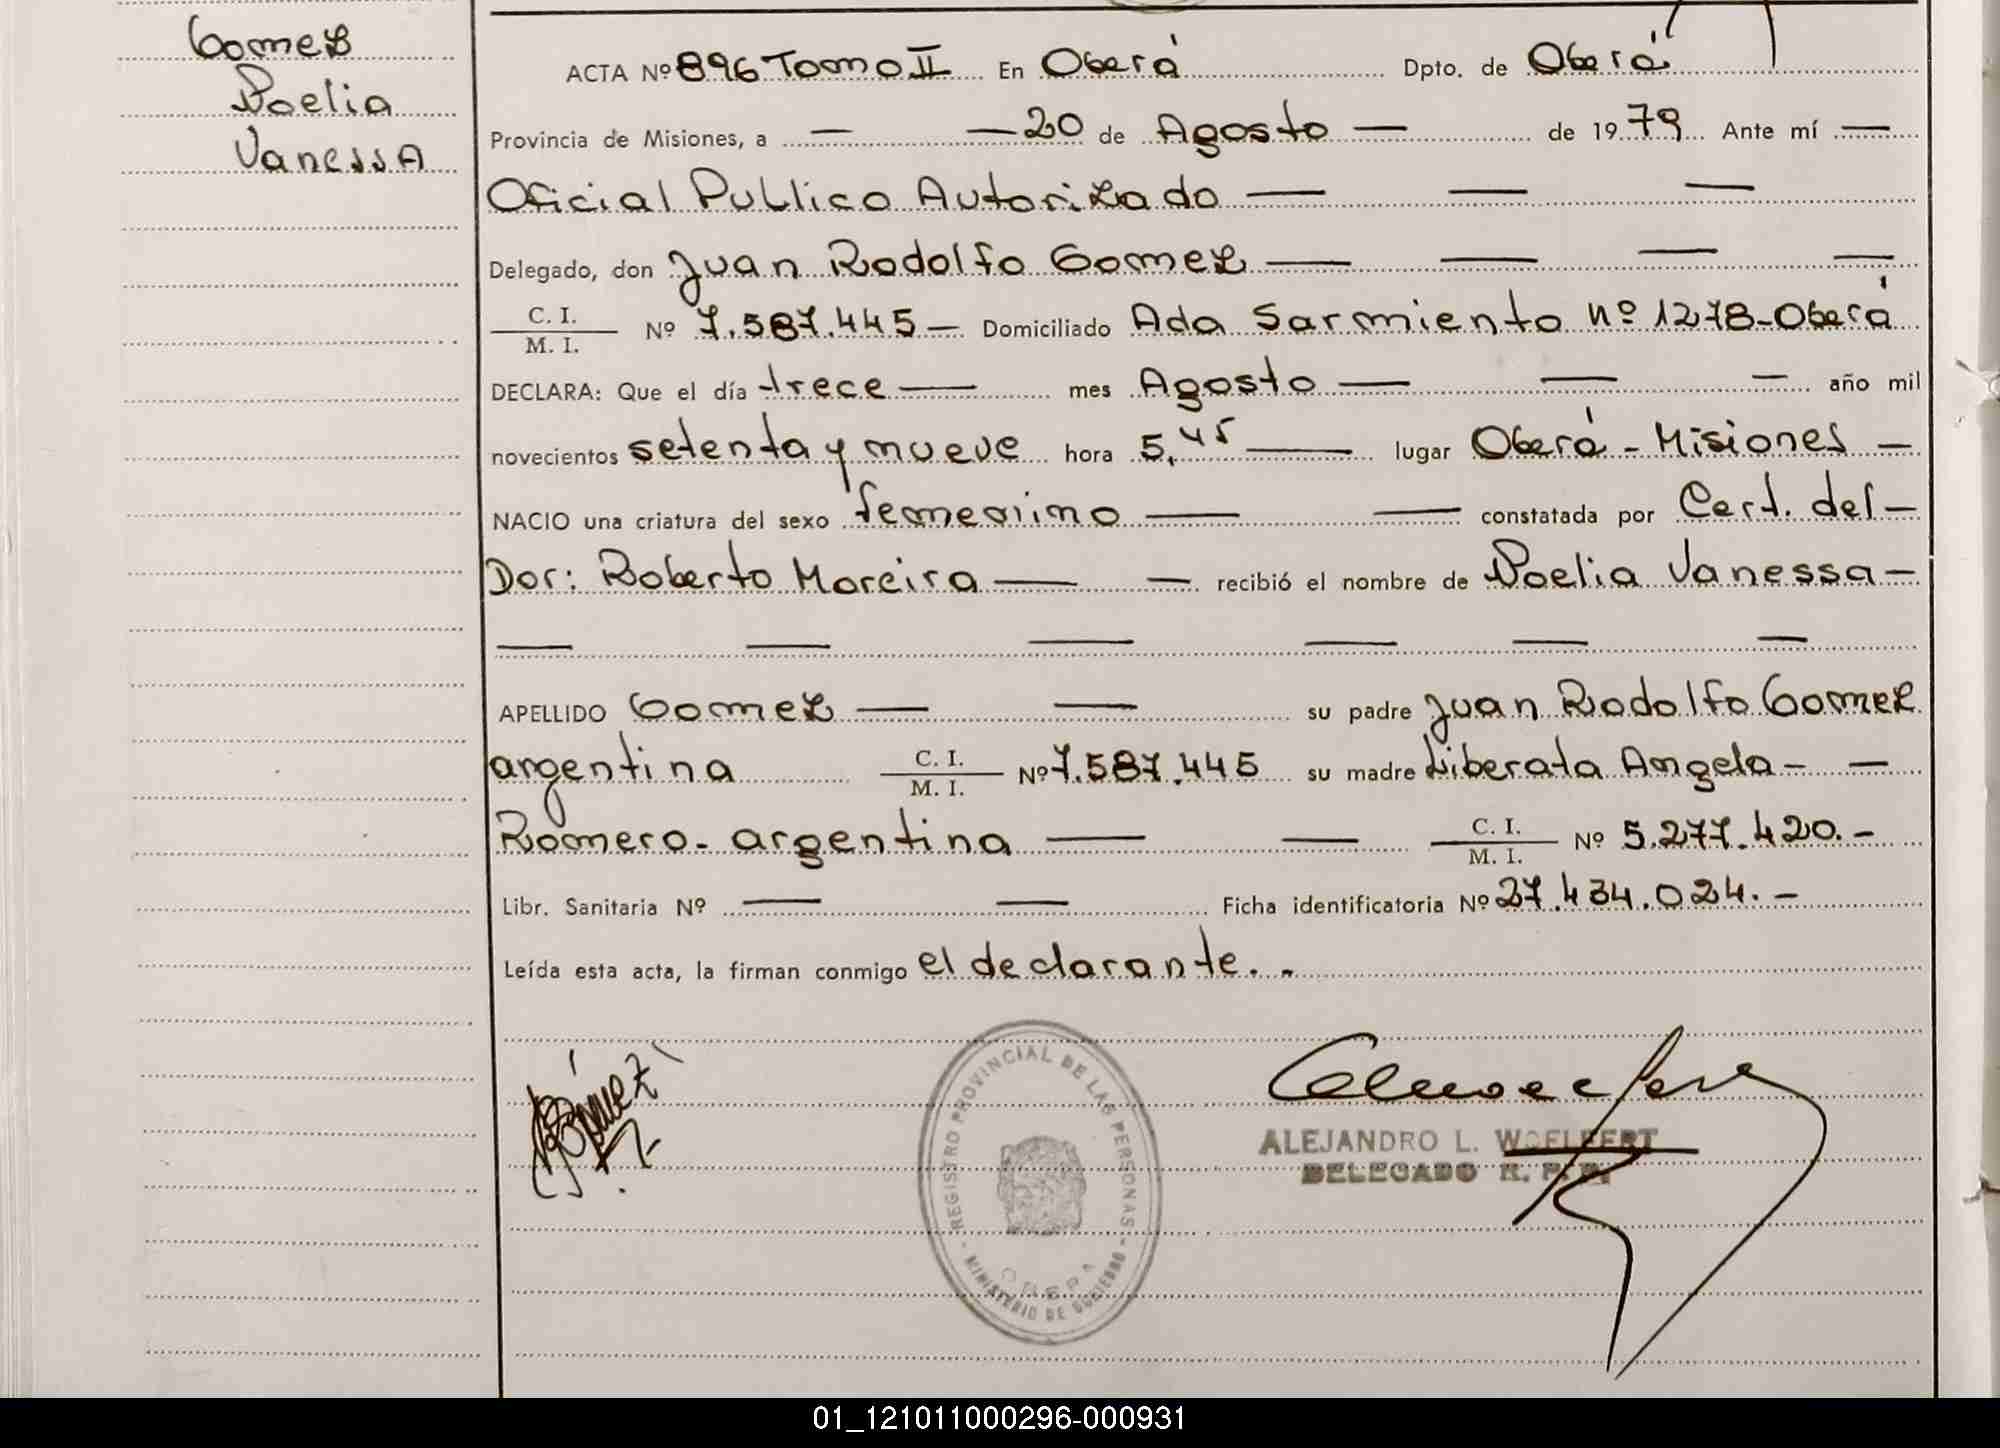 Gomez
Noelia
Vanessa
ACTA Nº 896 Tomo II En Oberá Dpto. de Oberá
Provincia de Misiones, a — — 20 de Agosto — de 1979 Ante mí —
Oficial Publico Autorizado — — —
Delegado, don Juan Rodolfo Gomez — — — —
C. I.
M. I. Nº 7.587.445 — Domiciliado Ada Sarmiento nº 1278 - Oberá
DECLARA: Que el día trece — mes Agosto — — — año mil
novecientos setenta y nueve hora 5,45 — lugar Oberá - Misiones —
NACIO una criatura del sexo femenino — — constatada por Cert. del —
Dor: Roberto Moreira — — recibió el nombre de Noelia Vanessa —
— — — — — —
APELLIDO Gomez — — su padre Juan Rodolfo Gomez
argentina C. I.
M. I. Nº 7.587.445 su madre Liberata Angela - —
Romero - argentina — — C. I.
M. I. Nº 5.277.420. -
Libr. Sanitaria Nº — — Ficha identificatoria Nº 27.434.024. -
Leída esta acta, la firman conmigo el declarante. .
Gómez
REGISTRO PROVINCIAL DE LAS PERSONAS
MINISTERIO DE GOBIERNO
OBERA
ALEJANDRO L. WOELFERT
DELEGADO R. P. P.
01_121011000296-000931